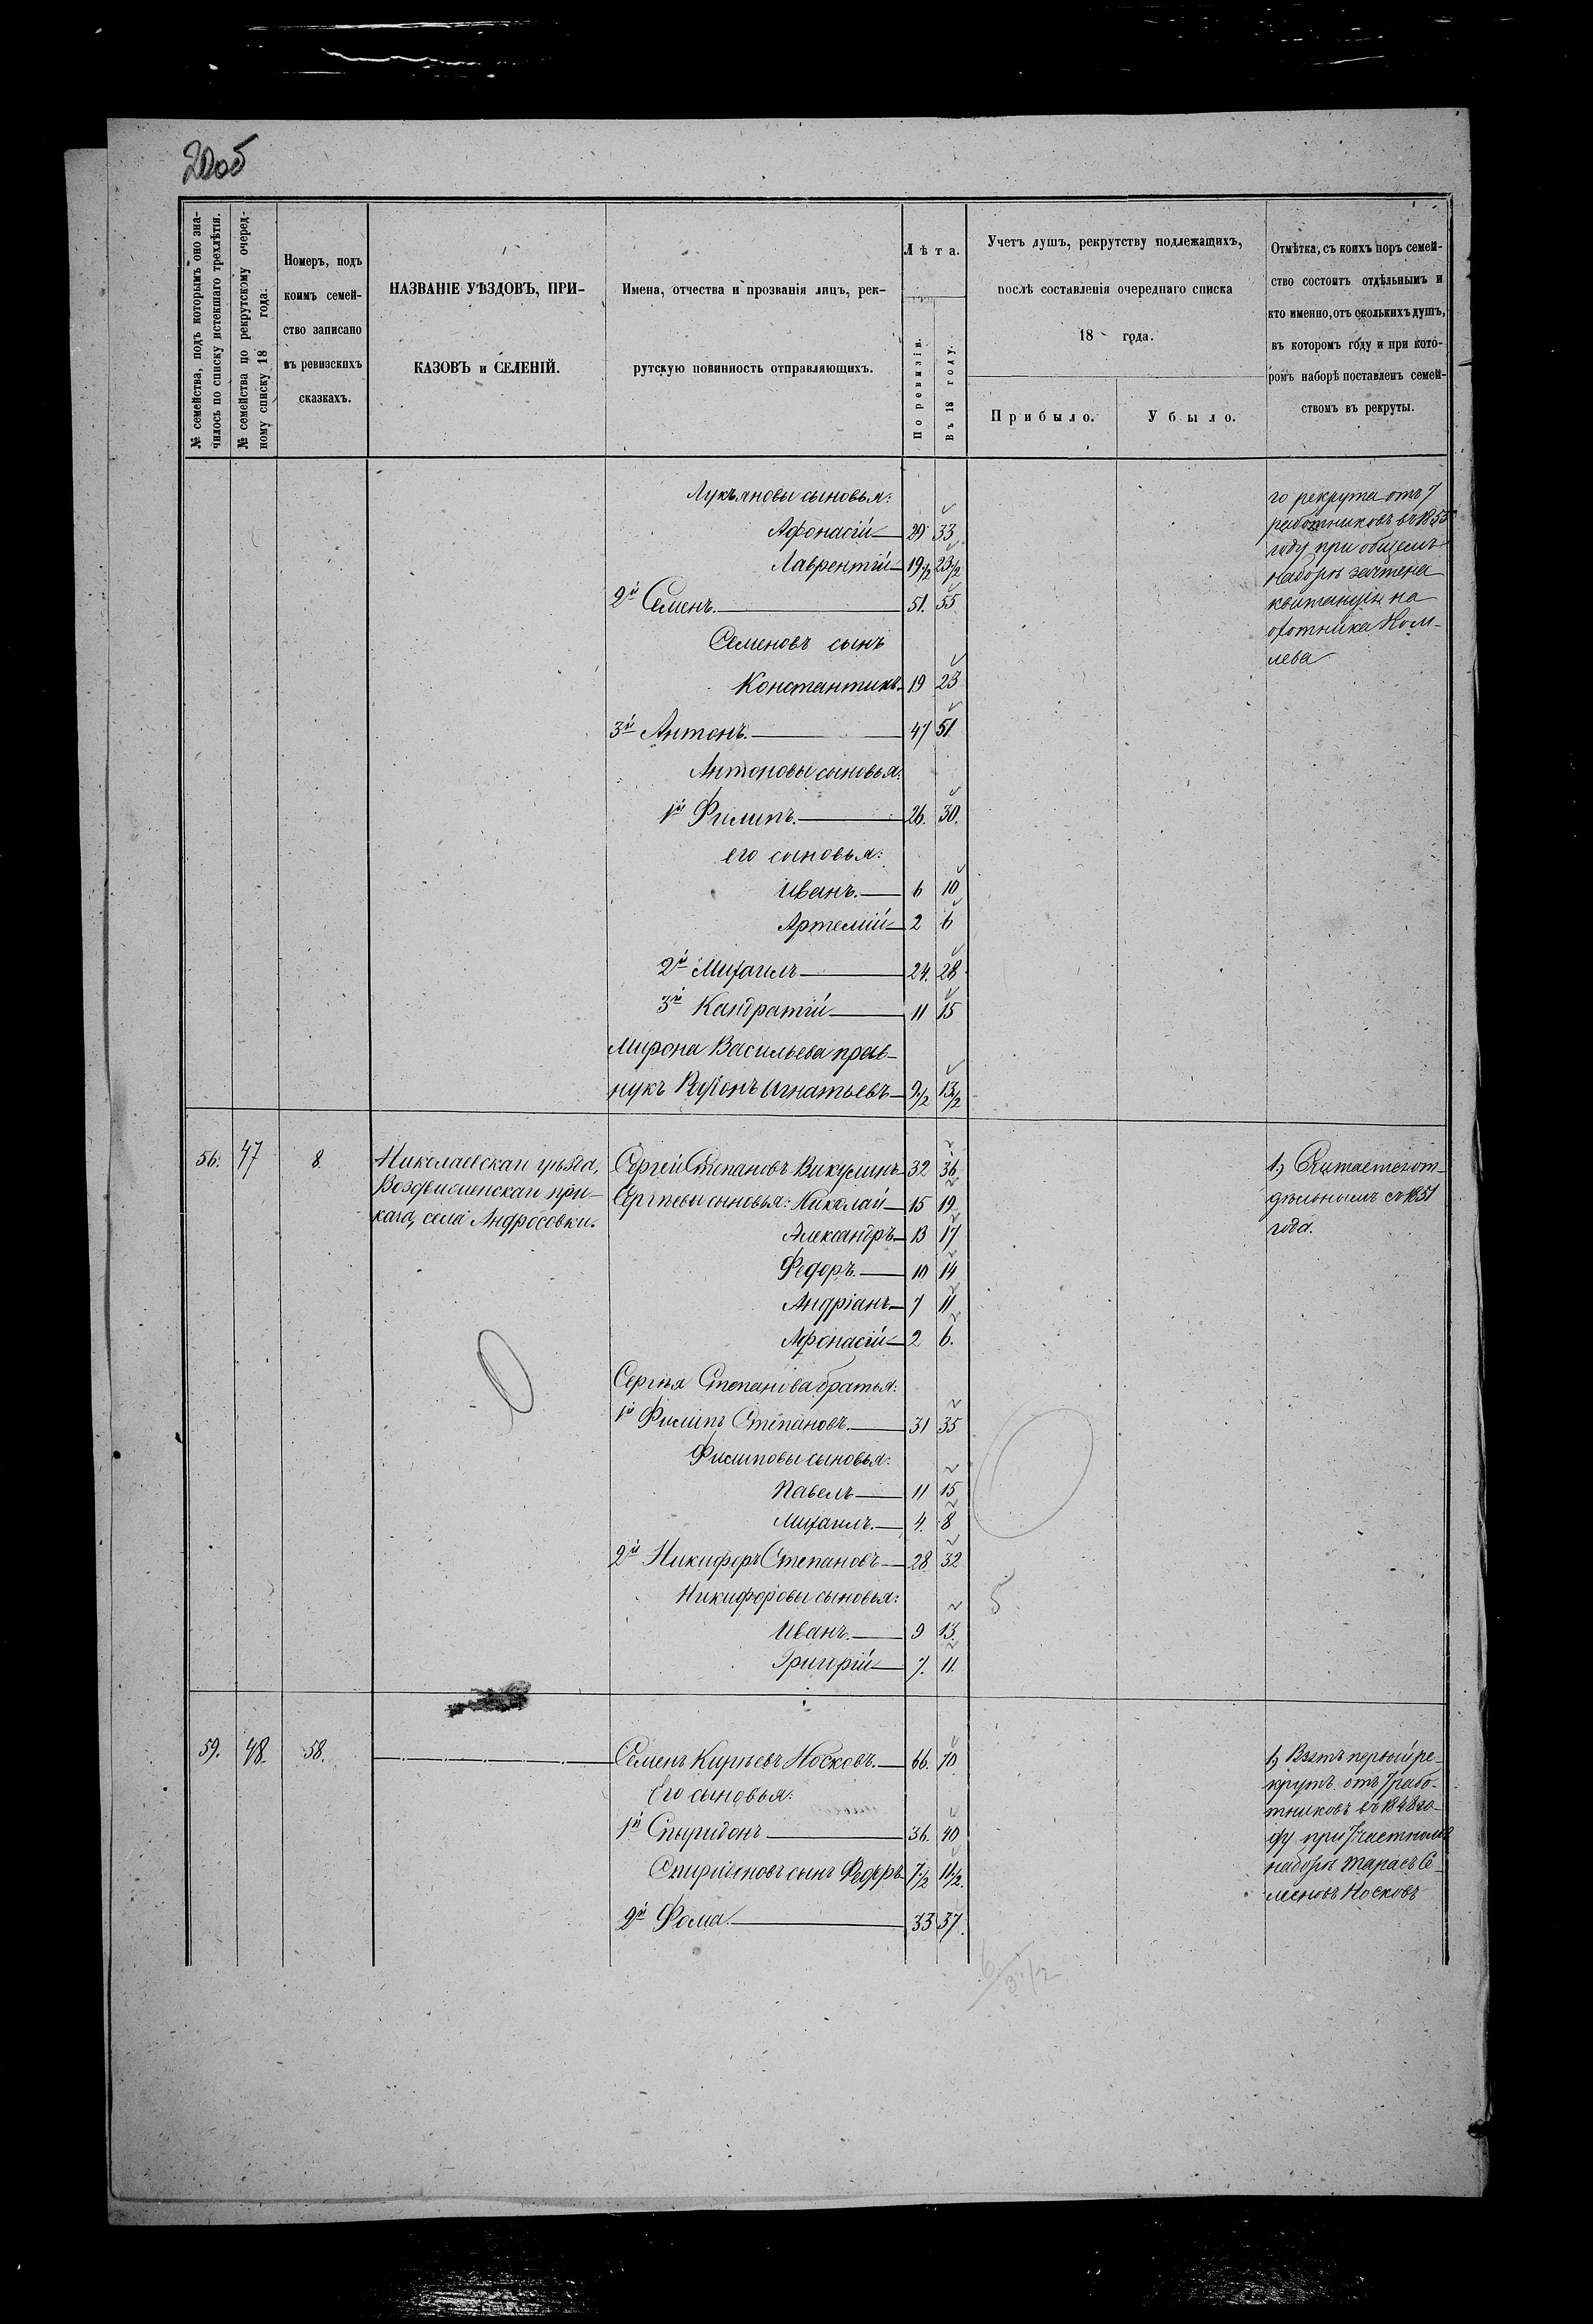 20об
№ семейства, подъ которымъ оно зна-
чилось по списку истекшаго трехлѣтія.
№ семейства по рекрутскому очеред-
ному списку 18 года.
Номеръ, подъ
коимъ семей-
ство записано
въ ревизскихъ
сказкахъ.
НАЗВАНІЕ УѢЗДОВЪ, ПРИ-
КАЗОВЪ и СЕЛЕНІЙ.
Имена, отчества и прозванія лицъ, рек-
рутскую повинность отправляющихъ.
Лѣта.
По ревизіи.
Въ 18 году.
Учетъ душъ, рекрутству подлежащихъ,
послѣ составленія очереднаго списка
18 года.
Прибыло.
Убыло.
Отмѣтка, съ коихъ поръ семей-
ство состоитъ отдѣльнымъ и
кто именно, отъ сколькихъ душъ,
въ которомъ году и при кото-
ромъ наборѣ поставленъ семей-
ствомъ въ рекруты.
Лукъяновы сыновья:
Афонасій 29 33
Лаврентій 19 1/2 23 1/2
2й Семенъ. 51. 55
Семеновъ сынъ
Константинъ. 19 23
3й Антонъ. 47 51
Антоновы сыновья:
1й Филипъ. 26. 30.
его сыновья:
Иванъ. 6 10
Артемій 2 6
2й Михаилъ 24. 28
3й Кандратій 11 15
Мирона Васильева прав-
нукъ Родіонъ Игнатьевъ 9 1/2 13 1/2
го рекрута отъ 7
работниковъ въ 1855
году при общемъ
наборѣ зачтена
квитанція на
охотника Ком-
лева
56. 47 8. Николаевскаго уѣзда, Сергей Степановъ Викулинъ 32 36
Воздвиженскаго при- Сергѣевы сыновья: Николай 15 19
каза, села Андросовки. Александръ 13 17
Федоръ. 10 14
Андріанъ 7 11
Афонасій 2 6.
Сергѣя Степанова братья:
1й Филипъ Степановъ. 31 35
Филиповы сыновья:
Павелъ 11 15
Михаилъ. 4. 8
2й Никифоръ Степановъ 28 32
Никифоровы сыновья:
Иванъ. 9 13.
Григорій 7. 11.
5
1) Считается от-
дѣльнымъ съ 1851
года.
59. 48. 58. Семенъ Кирѣевъ Носковъ. 66. 70
Его сыновья:
1й Спиридонъ 36. 40
Спиридоновъ сынъ Федоръ 7 1/2 11 1/2.
2й Фома. 33 37.
1) Взятъ первый ре-
крутъ отъ 7 рабо-
тниковъ въ 1848 го-
ду при 7 частномъ
наборѣ Тарасъ Се-
меновъ Носковъ
6
3 1/2